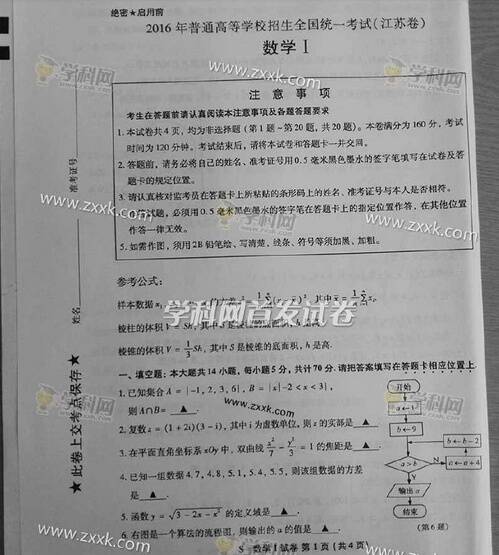 绝密★启用前
2016 年普通高等学校招生全国统一考试(江苏卷)
数学 I
学科网
www.zxxk.com
注意事项
考生在答题前请认真阅读本注意事项及各题答题要求
1. 本试卷共 4 页, 均为非选择题 (第 1 题~第 20 题, 共 20 题)。本卷满分为 160 分, 考试
时间为 120 分钟。考试结束后, 请将本试卷和答题卡一并交回。
2. 答题前, 请务必将自己的姓名、准考证号用 0.5 毫米黑色墨水的签字笔填写在试卷及答
题卡的规定位置。
3. 请认真核对监考员在答题卡上所粘贴的条形码上的姓名、准考证号与本人是否相符。
答试题, 必须用 0.5 毫米黑色墨水的签字笔在答题卡上的指定位置作答, 在其他位置
作答一律无效。
5. 如需作图, 须用 2B 铅笔绘、写清楚, 线条、符号等须加黑、加粗。
准考证号
姓名
★此卷上交考点保存★
参考公式:
样本数据
学科网首发试卷
棱柱的体积 V = Sh, 其中 S 是棱柱的底面积, h 是高.
棱锥的体积 V = 1/3 Sh, 其中 S 是棱锥的底面积, h 是高.
一、填空题: 本大题共 14 小题, 每小题 5 分, 共计 70 分. 请把答案填写在答题卡相应位置上.
1. 已知集合 A = {-1, 2, 3, 6}, B = {x|-2 < x < 3},
则 A∩B = ▲ .
2. 复数 z = (1 + 2i)(3 - i), 其中 i 为虚数单位, 则 z 的实部是 ▲ .
3. 在平面直角坐标系 xOy 中, 双曲线 x²/7 - y²/3 = 1 的焦距是 ▲ .
4. 已知一组数据 4.7, 4.8, 5.1, 5.4, 5.5, 则该组数据的方差
是 ▲ .
5. 函数 y = √(3 - 2x - x²) 的定义域是 ▲ .
6. 右图是一个算法的流程图, 则输出的 a 的值是 ▲ .
开始
a←1
b←9
b←b-2
a>b
N
a←a+4
Y
输出 a
(第 6 题)
数学 I 试卷 第 1 页 (共 4 页)